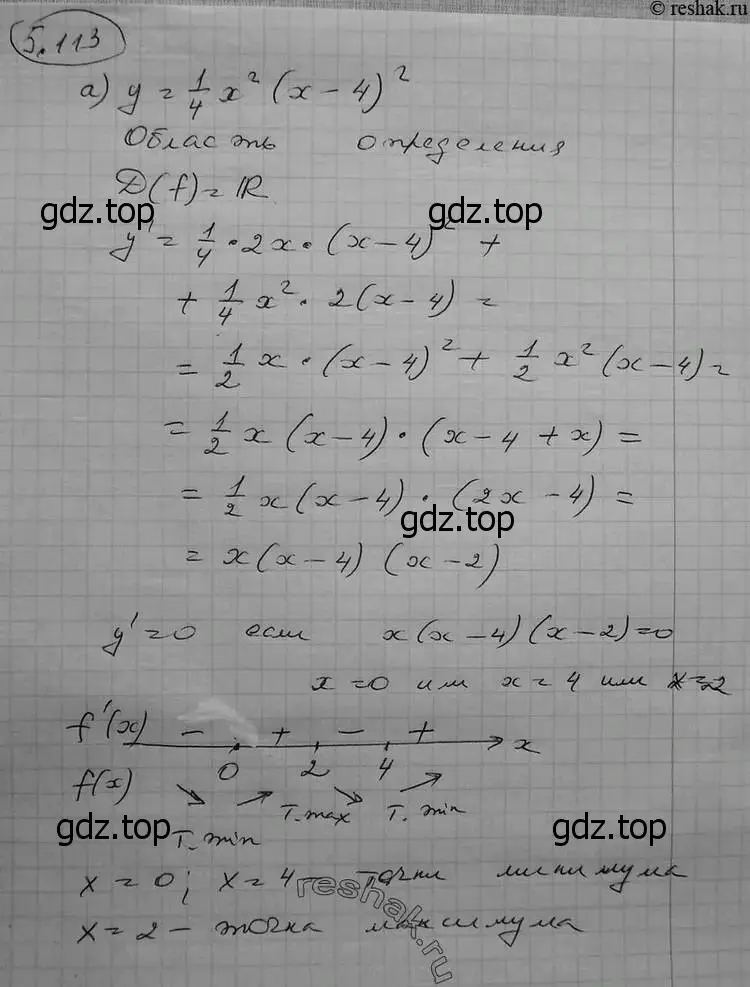 © reshak.ru
5.113
а) y = 1/4 x² (x – 4)²
Область определения
D(f) = ℝ
gdz.top gdz.top
y' = 1/4 · 2x · (x – 4)² +
+ 1/4 x² · 2(x – 4) =
= 1/2 x · (x – 4)² + 1/2 x² (x – 4) =
= 1/2 x (x – 4) · (x – 4 + x) =
= 1/2 x (x – 4) · (2x – 4) =
gdz.top
= x (x – 4) (x – 2)
y' = 0 если x (x – 4) (x – 2) = 0
x = 0 или x = 4 или x = 2
f'(x) – + – + x
0 2 4
f(x) ↘ ↗ ↘ ↗
T. max T. min
gdz.top gdz.top
T. min
x = 0; x = 4 – точки минимума
reshak.ru
x = 2 – точка максимума